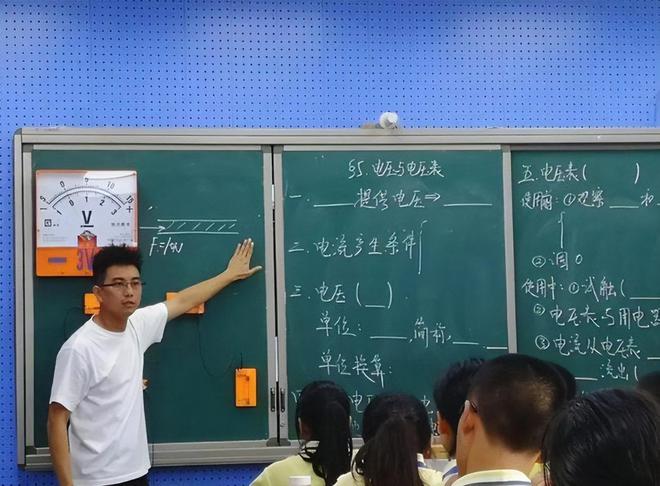 -5 0 5 10 15
-1 0 1 2 3
V
- 3V +
F=10N
§5.电压与电压表
一. ______提供电压⇒____
二.电流产生条件{
三.电压(__)
单位:____,简称,___
单位换算:
电压
五.电压表( )
使用前:①观察___和
②调0
使用中:①试触(
②电压表与用电器
③电流从电压表
___流出(